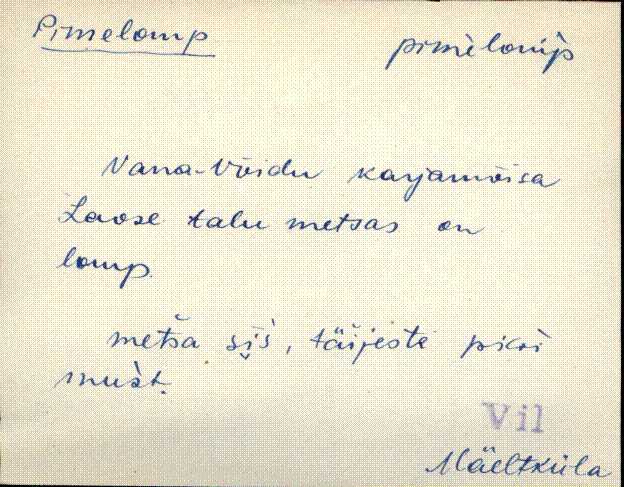 Pimelomp
pimèlom̀p
Vana-Võidu karjamõisa
Laose talu metsas on
lomp.
metsa šiš, täijeste pikši
mušt.
Vil
Mäeltküla